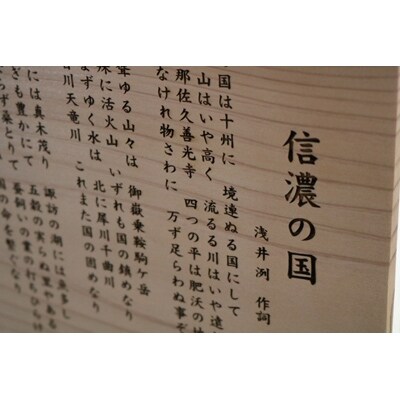 信濃の国
浅井洌 作詞
国は十州に 境連ぬる国にして
山はいや高く 流るる川はいや遠
那佐久善光寺 四つの平は肥沃の
なけれ物さわに 万ず足らわぬ事ぞ
聳ゆる山々は 御嶽乗鞍駒ケ岳
殊に活火山 いずれも国の鎮めなり
まずゆく水は 北に犀川千曲川
川天竜川 これまた国の固めなり
には真木茂り 諏訪の湖には魚多し
ぎも豊かにて 五穀の実らぬ里やある
らず桑とりて 蚕飼いの業の打ちひらけ
の命を繋ぐなり